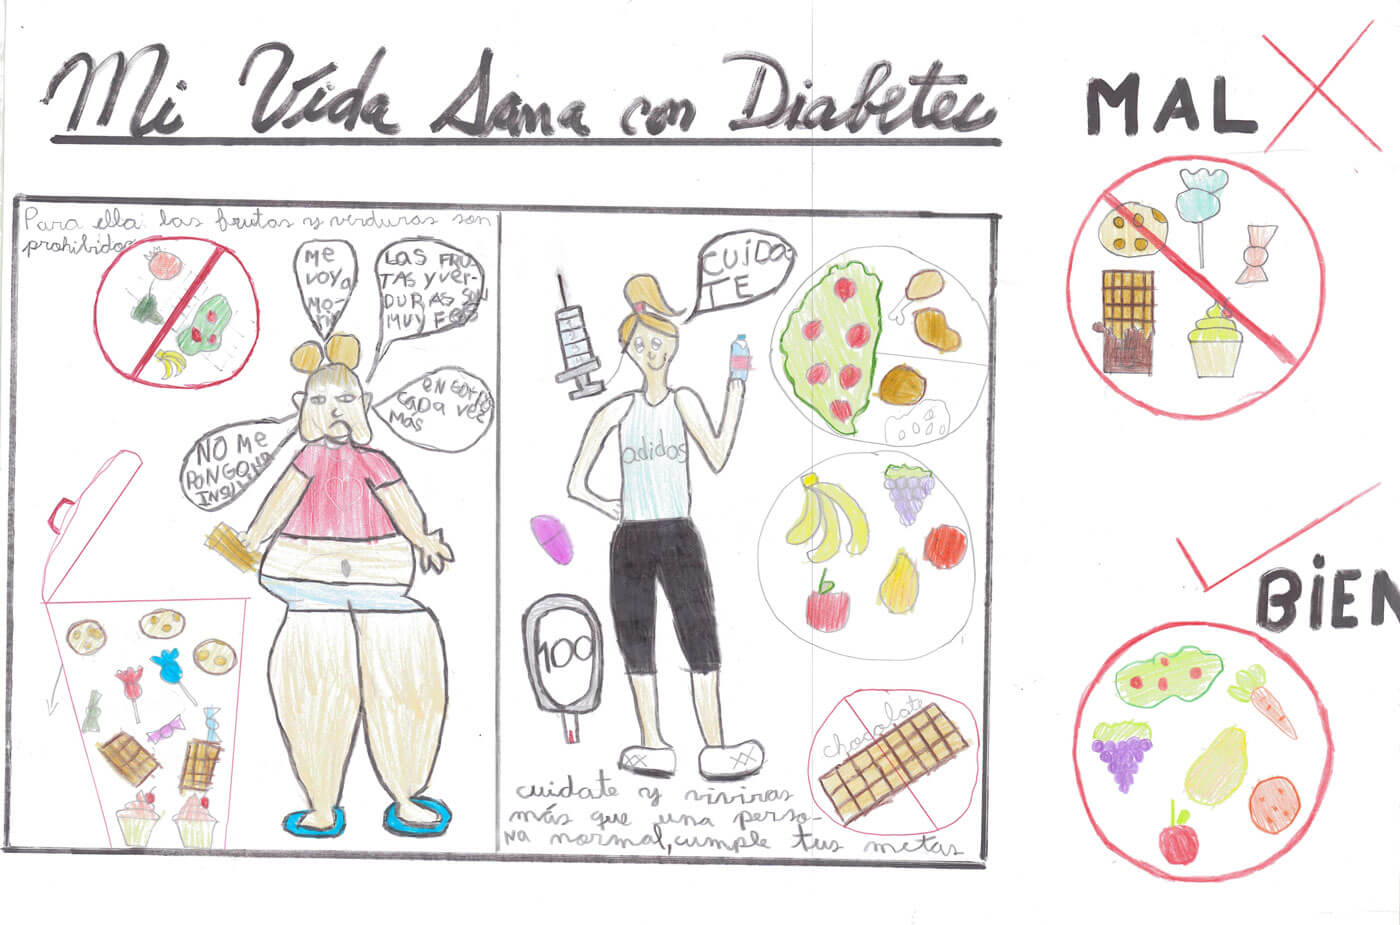 Mi Vida Sana con Diabetes
MAL
Para ella: las frutas y verduras son
prohibidos
ME
VOY a
MO-
RiR
LAS FRU
TAS y VER-
DURAS SON
MUY FEAS
ENGORDO
CADA VEZ
MÁS
NO ME
PONGO
INSULINA
CUiDA
TE
adidas
100
chocolate
cuidate y viviras
más que una perso-
na normal, cumple tus metas
BiEN